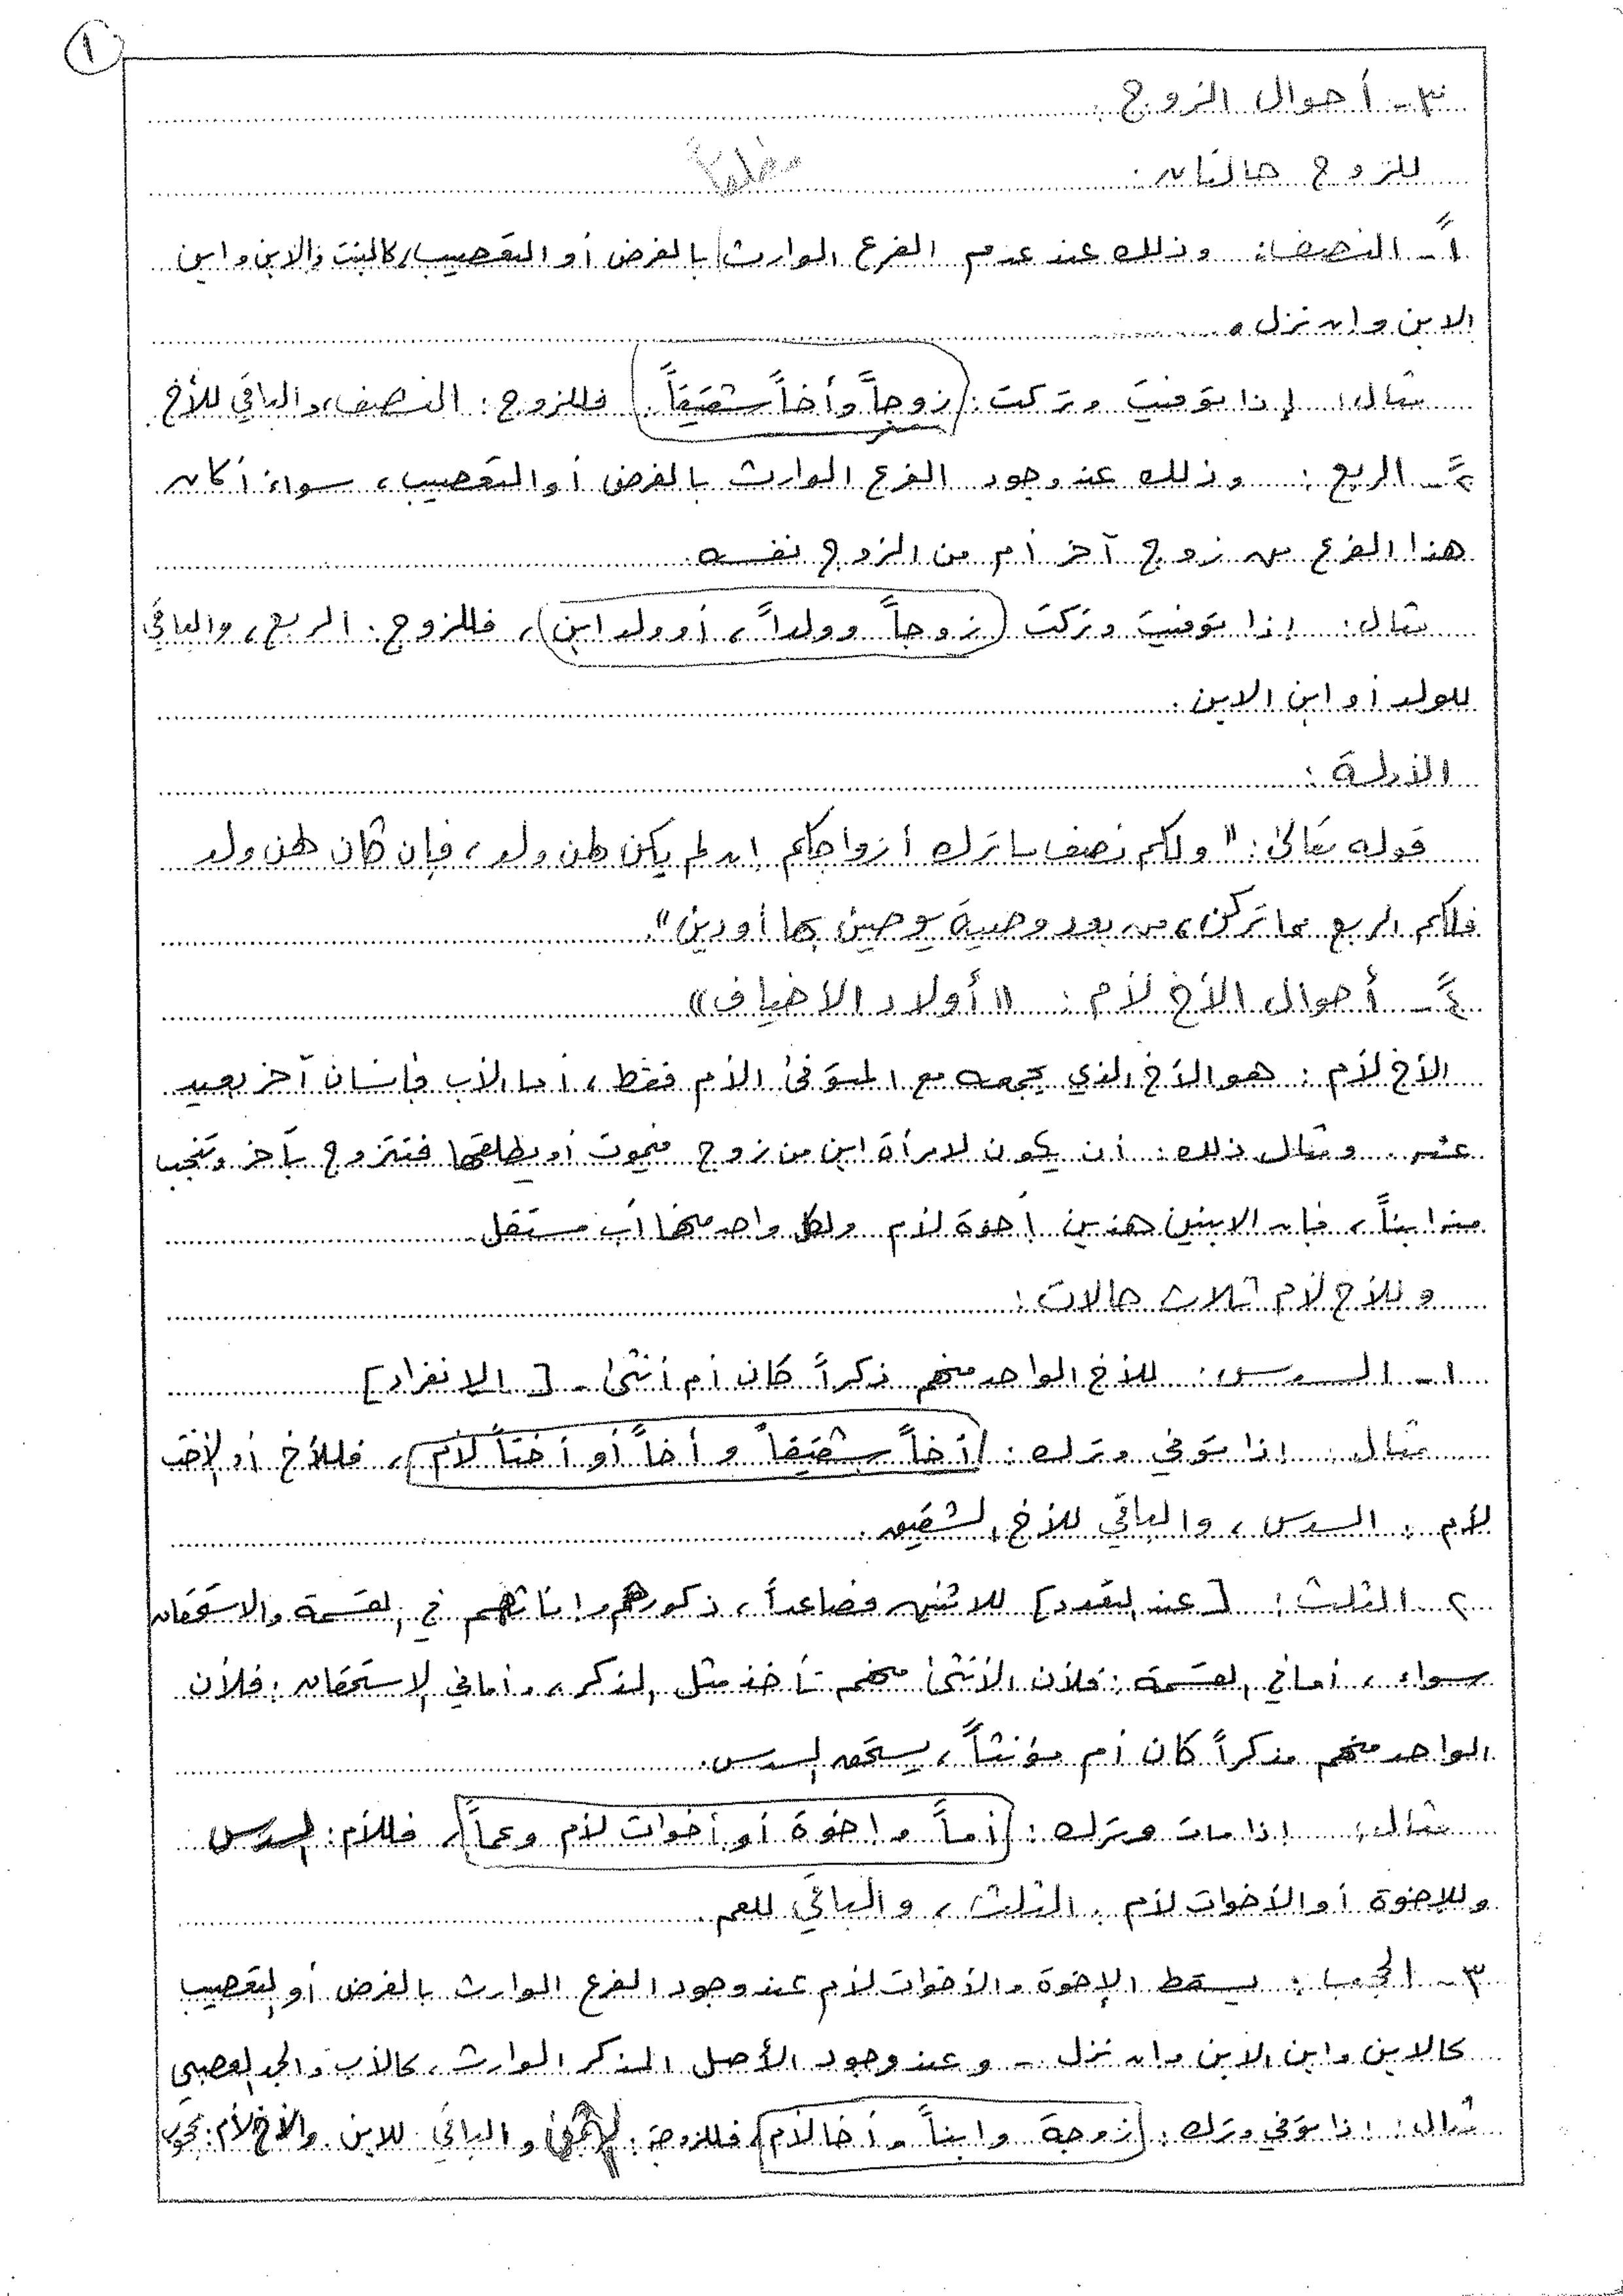 ١
٣ - أحوال الزوج :
للزوج حالتان :
مطلقاً
١ً - النصف : وذلك عند عدم الفرع الوارث بالفرض أو التعصيب، كالبنت والابن وابن
الابن وان نزل .
مثال : إذا توفيت وتركت : (زوجاً وأخاً شقيقاً) فللزوج : النصف، والباقي للأخ .
٢ً - الربع : وذلك عند وجود الفرع الوارث بالفرض أو التعصيب ، سواء أكان
هذا الفرع من زوج آخر أم من الزوج نفسه .
مثال : إذا توفيت وتركت (زوجاً وولداً ، أو ولد ابن) ، فللزوج : الربع ، والباقي
للولد أو ابن الابن .
الأدلة :
قوله تعالى : " ولكم نصف ما ترك أزواجكم ان لم يكن لهن ولد ، فإن كان لهن ولد
فلكم الربع مما تركن ، من بعد وصية يوصين بها أو دين " .
٤ً - أحوال الأخ لأم : (( أولاد الأخياف ))
الأخ لأم : هو الأخ الذي يجمعه مع المتوفى الأم فقط ، أما الأب فإنسان آخر بعيد
عنه . ومثال ذلك : أن يكون لامرأة ابن من زوج فيموت أو يطلقها فتتزوج بآخر وتنجب
منه ابناً ، فان الابنين هذين اخوة لأم ولكل واحد منهما أب مستقل .
وللأخ لأم ثلاث حالات :
١ - السدس : للأخ الواحد منهم ذكراً كان أم أنثى - [ الانفراد ]
مثال : إذا توفي وترك : (أخاً شقيقاً و أخاً أو أختاً لأم) ، فللأخ أو لأخت
لأم : السدس ، والباقي للأخ الشقيق .
٢ - الثلث : [ عند التعدد ] للاثنين فصاعداً ، ذكورهم واناثهم في القسمة والاستحقاق
سواء ، أما في القسمة : فلأن الأنثى منهم تأخذ مثل الذكر ، وأما في الاستحقاق : فلأن
الواحد منهم مذكراً كان أم مؤنثاً ، يستحق السدس .
مثال : إذا مات وترك : (أماً و اخوة أو أخوات لأم وعماً) ، فللأم : السدس
وللإخوة أو الأخوات لأم : الثلث ، والباقي للعم .
٣ - الحجب : يسقط الإخوة والأخوات لأم عند وجود الفرع الوارث بالفرض أو التعصيب
كالابن وابن الابن وان نزل - وعند وجود الأصل المذكر الوارث ، كالأب والجد العصبي
مثال : إذا توفي وترك : (زوجة وابناً وأخا لأم) فللزوجة : الثمن و الباقي للابن . والأخ لأم : محجوب